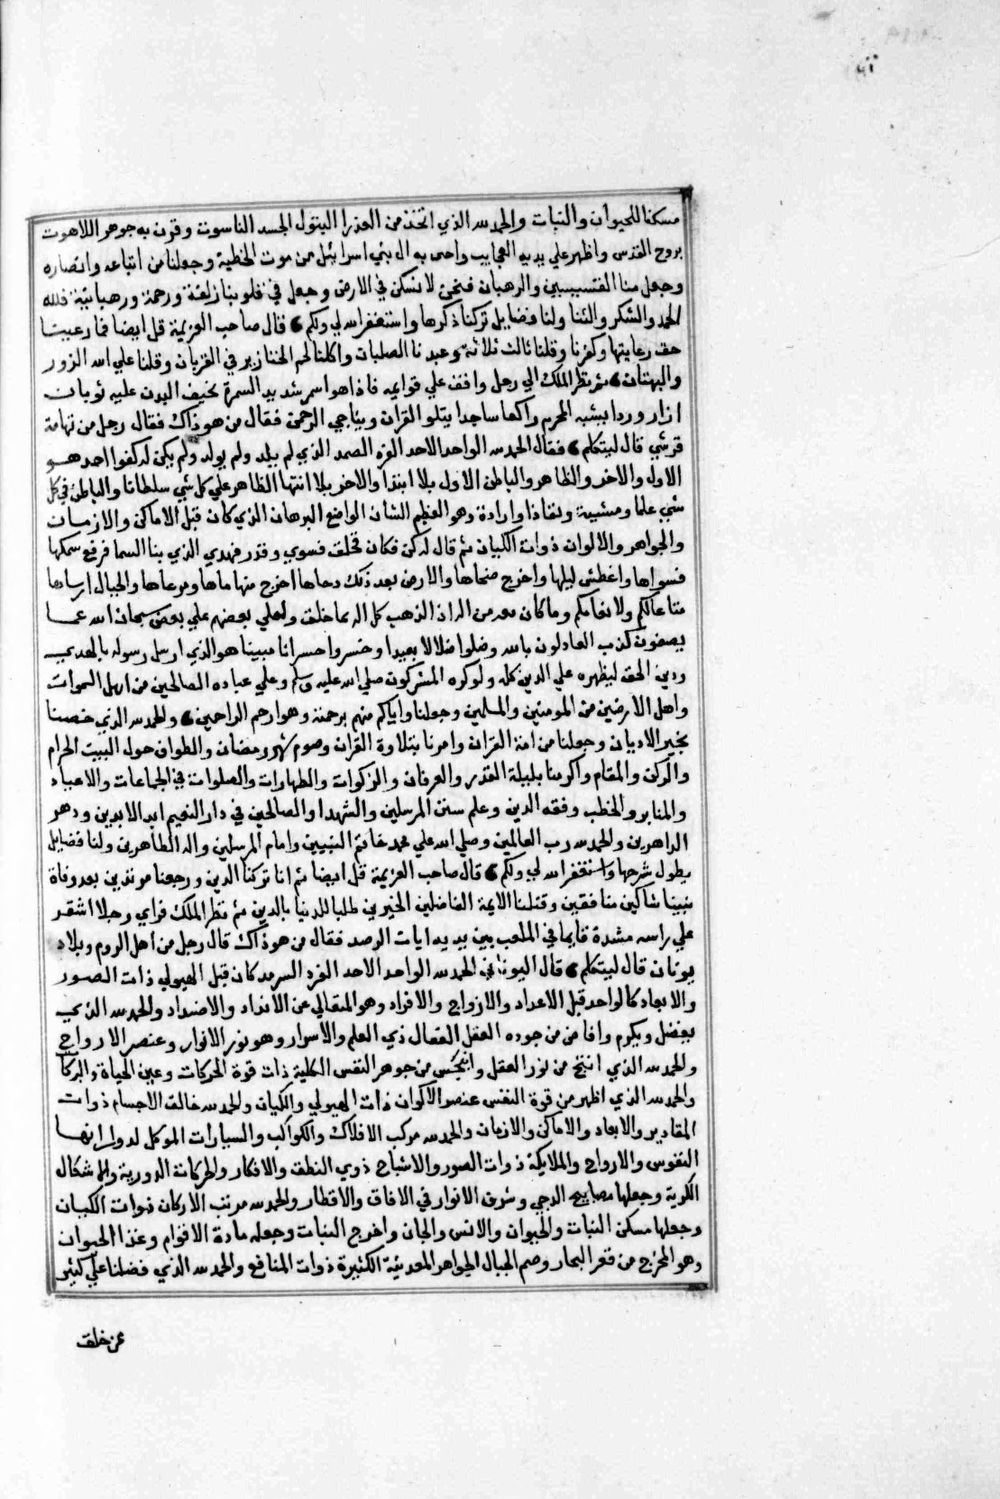 مسكنا للحيوان والنبات والحمد لله الذي اتخذ من العذرا البتول الجسد الناسوت وقرن به جوهر اللاهوت
بروح القدس واظهر علي يديه العجايب واحي به ال بني اسرائيل من موت الخطية وجعلنا من اتباعه وانصاره
وجعل منا القسيسين والرهبان فنحن لا نسكن في الارض وجعل في قلوبنا رافة ورحمة ورهبانية فلله
الحمد والشكر والثنا ولنا فضايل تركنا ذكرها واستغفر الله لي ولكم قال صاحب العزيمة قل ايضا فما رعيتا
حق رعايتها وكفرنا وقلنا ثالث ثلاثة وعبدنا الصلبان واكلنا لحم الخنازير في القربان وقلنا علي الله الزور
والبهتان ثم نظر الملك الي رجل واقف علي قوايمه فاذا هو اسمر شديد السمرة نحيف البدن عليه ثوبان
ازار وردا يشبه المحرم راكعا ساجدا يتلو القران ويناجي الرحمن فقال من هو ذاك فقال رجل من تهامة
قرشي قال ليتكلم فقال الحمد لله الواحد الاحد الفرد الصمد الذي لم يلد ولم يولد ولم يكن له كفوا احد هو
الاول والاخر والظاهر والباطن الاول بلا ابتدا والاخر بلا انتها الظاهر علي كل شي سلطانا والباطن في كل
شي علما ومشيية ونفاذا وارادة وهو العظيم الشان الواضح البرهان الذي كان قبل الاماكن والازمان
والجواهر والالوان ذوات الكيان ثم قال له كن فكان فخلق فسوي وقدر فهدي الذي بنا السما فرفع سمكها
فسواها واغطش ليلها واخرج ضحاها والارض بعد ذلك دحاها اخرج منها ماها ومرعاها والجبال ارساها
متاعا لكم ولانعامكم وما كان معه من اله اذا لذهب كل اله بما خلق ولعلي بعضهم علي بعض سبحان الله عما
يصفون كذب العادلون بالله وضلوا ضلالا بعيدا وخسروا خسرانا مبينا هو الذي ارسل رسوله بالهدي
ودين الحق ليظهره علي الدين كله ولو كره المشركون صلي الله عليه وسلم وعلي عباده الصالحين من اهل السموات
واهل الارضين من المومنين والمسلمين وجعلنا واياكم منهم برحمته وهو ارحم الراحمين والحمد لله الذي خصنا
بخير الاديان وجعلنا من امة القران وامرنا بتلاوة القران وصوم شهر رمضان والطواف حول البيت الحرام
والركن والمقام واكرمنا بليلة القدر والعرفان والزكوات والطهارات والصلوات في الجماعات والاعياد
والمنابر والخطب وفقه الدين وعلم سنن المرسلين والشهدا والصالحين في دار النعيم ابد الابدين ودهر
الداهرين والحمد لله رب العالمين وصلي الله علي محمد خاتم النبيين وامام المرسلين واله الطاهرين ولنا فضايل
يطول شرحها واستغفر الله لي ولكم قال صاحب العزيمة قل ايضا ثم انا تركنا الدين ورجعنا مرتدين بعد وفاة
نبينا شاكين منافقين وقتلنا الايمة الفاضلين الخيرين طلبا للدنيا بالدين ثم نظر الملك فراي رجلا اشقر
علي راسه مشدة قايما في الملعب بين يديه ايات الرصد فقال من هو ذاك قال رجل من اهل الروم وبلاد
يونان قال ليتكلم قال اليوناني الحمد لله الواحد الاحد الفرد السرمد كان قبل الهيولي ذات الصور
والابعاد كالواحد قبل الاعداد والازواج والافراد وهو المتعالي عن الانداد والاضداد والحمد لله الذي
بفضل وبكرم وافاض من جوده العقل الفعال ذي العلم والاسرار وهو نور الانوار وعنصر الارواح
والحمد لله الذي انتج من نور العقل وانبجس من جوهر النفس الكلية ذات قوة الحركات وعين الحياة والبركا
والحمد لله الذي اظهر من قوة النفس عنصر الاكوان ذات الهيولي والكيان والحمد لله خالق الاجسام ذوات
المقادير والابعاد والاماكن والازمان والحمد لله مركب الافلاك والكواكب والسيارات الموكل لدورانها
النفوس والارواح والملايكة ذوات الصور والاشباح ذوي النطق والافكار والحركات الدورية والاشكال
الكرية وجعلها مصابيح الدجي ومشرق الانوار في الافاق والاقطار والحمد لله مرتب الاركان ذوات الكيان
وجعلها مسكن النبات والحيوان والانس والجان واخرج النبات وجعله مادة الاقوام وغذا الحيوان
وهو المخرج من قعر البحار وصم الجبال الجواهر المعدنية الكثيرة ذوات المنافع والحمد لله الذي فضلنا علي كثير
ممن خلق